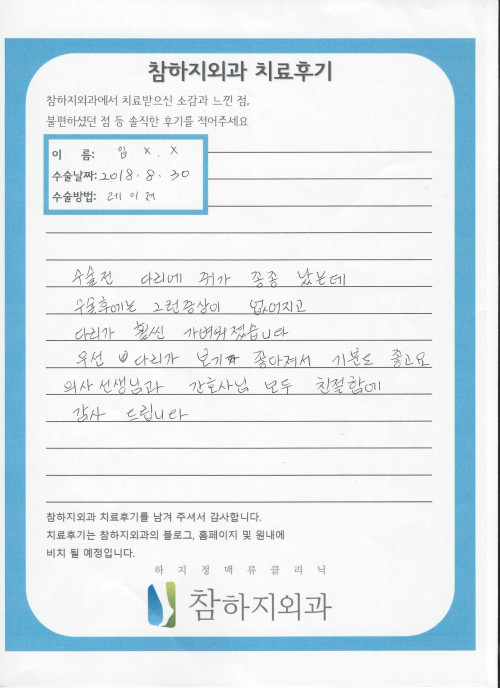 참하지외과 치료후기
참하지외과에서 치료받으신 소감과 느낀 점,
불편하셨던 점 등 솔직한 후기를 적어주세요
이 름: 임 X. X
수술날짜: 2018. 8. 30
수술방법: 레이저
수술전 다리에 쥐가 종종 났는데
수술후에는 그런증상이 없어지고
다리가 훨씬 가벼워졌습니다
우선 다리가 보기가 좋아져서 기분도 좋고요
의사선생님과 간호사님 모두 친절함에
감사 드립니다
참하지외과 치료후기를 남겨 주셔서 감사합니다.
치료후기는 참하지외과의 블로그, 홈페이지 및 원내에
비치 될 예정입니다.
하지정맥류클리닉
참하지외과